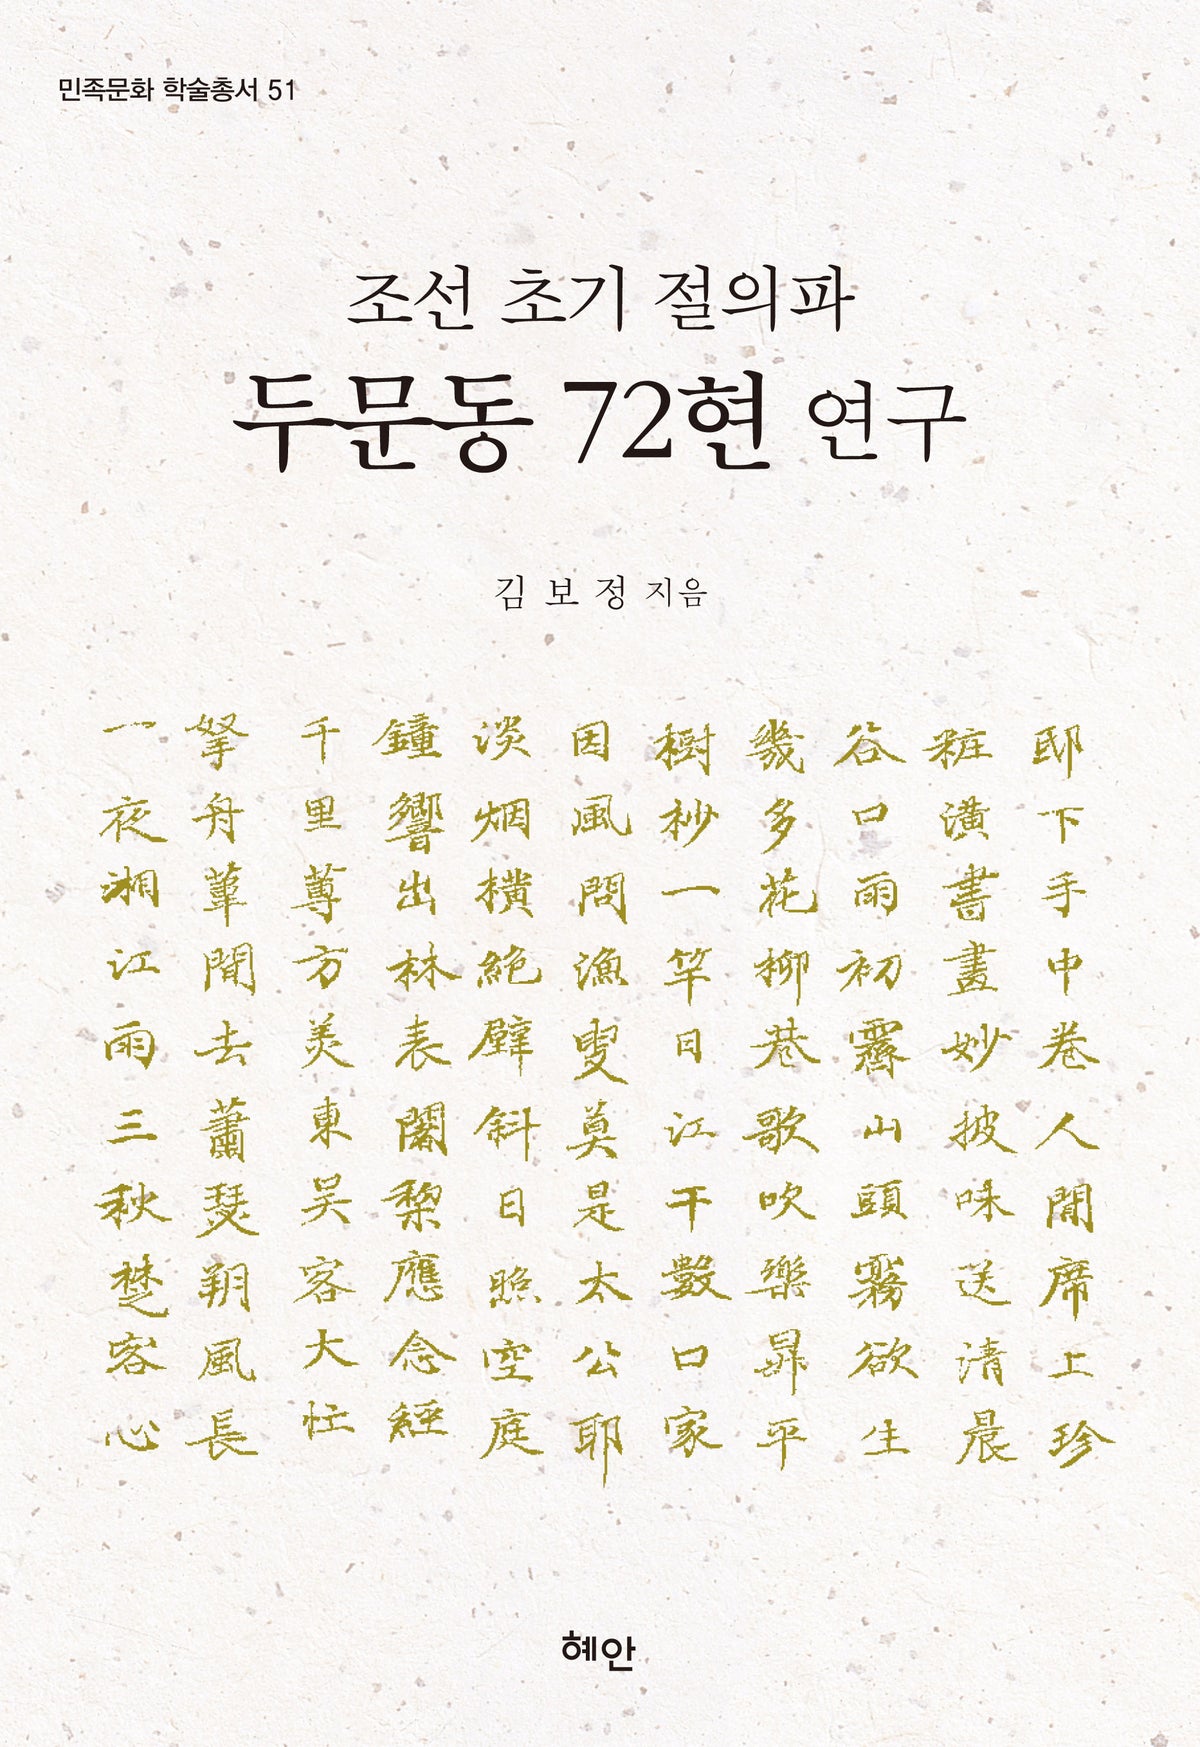 민족문화 학술총서 51
조선 초기 절의파
두문동 72현 연구
김보정 지음
邸下手中卷人閒席上珍
粧潢書畫妙披味送清晨
谷口雨初霽山頭霧欲生
幾多花柳巷歌吹樂昇平
樹杪一竿日江干數口家
因風問漁叟莫是太公耶
淡烟橫絶壁斜日照空庭
鐘響出林表闍黎應念經
千里蓴方美東吳客大忙
拏舟葦間去蕭瑟朔風長
一夜湘江雨三秋楚客心
혜안